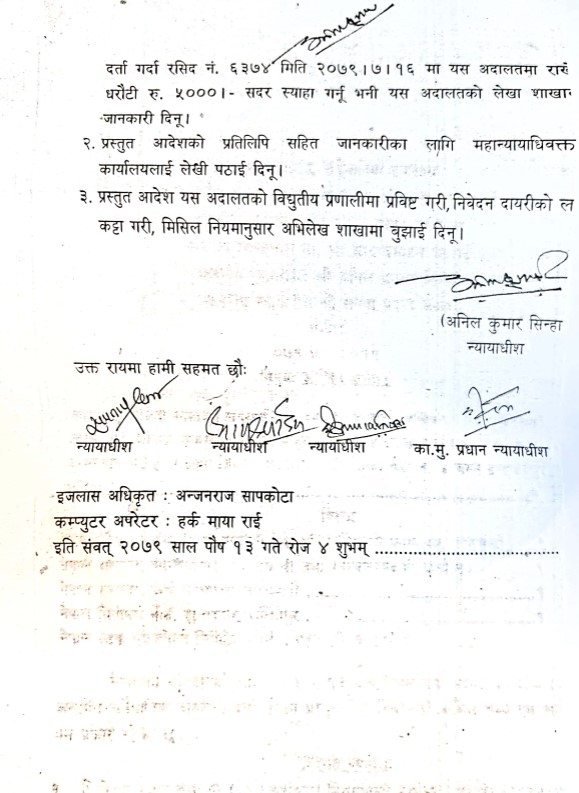 दर्ता गर्दा रसिद नं. ६३७४ मिति २०७९।७।१६ मा यस अदालतमा
धरौटी रु. ५०००।- सदर स्याहा गर्नू भनी यस अदालतको लेखा शाखा
जानकारी दिनू।
२. प्रस्तुत आदेशको प्रतिलिपि सहित जानकारीका लागि महान्यायाधिवक्त
कार्यालयलाई लेखी पठाई दिनू।
३. प्रस्तुत आदेश यस अदालतको विद्युतीय प्रणालीमा प्रविष्ट गरी, निवेदन दायरीको ल
कट्टा गरी, मिसिल नियमानुसार अभिलेख शाखामा बुझाई दिनू।
(अनिल कुमार सिन्हा
न्यायाधीश
उक्त रायमा हामी सहमत छौः
न्यायाधीश न्यायाधीश न्यायाधीश का.मु. प्रधान न्यायाधीश
इजलास अधिकृत : अन्जनराज सापकोटा
कम्प्युटर अपरेटर : हर्क माया राई
इति संवत् २०७९ साल पौष १३ गते रोज ४ शुभम् ...................................